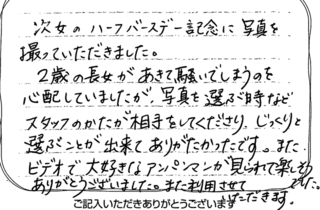 次女のハーフバースデー記念に写真を
撮っていただきました。
2歳の長女があきて騒いでしまうのを
心配していましたが、写真を選ぶ時など
スタッフのかたが相手をしてくださり、じっくりと
選ぶことが出来てありがたかったです。また
ビデオで大好きなアンパンマンが見られて楽しそうでした。
ありがとうございました。また利用させていただきます。
ご記入いただきありがとうございます